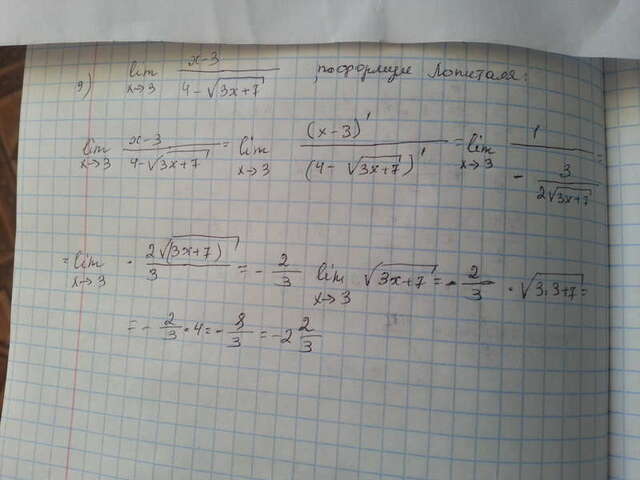 9) lim x→3 x-3 / 4-√3x+7 , по формуле Лопиталя:
lim x→3 x-3 / 4-√3x+7 = lim x→3 (x-3)' / (4-√3x+7)' = lim x→3 1 / - 3 / 2√3x+7 =
= lim x→3 - 2√(3x+7) / 3 = - 2/3 lim x→3 √3x+7 = - 2/3 · √3·3+7 =
= - 2/3 · 4 = - 8/3 = -2 2/3